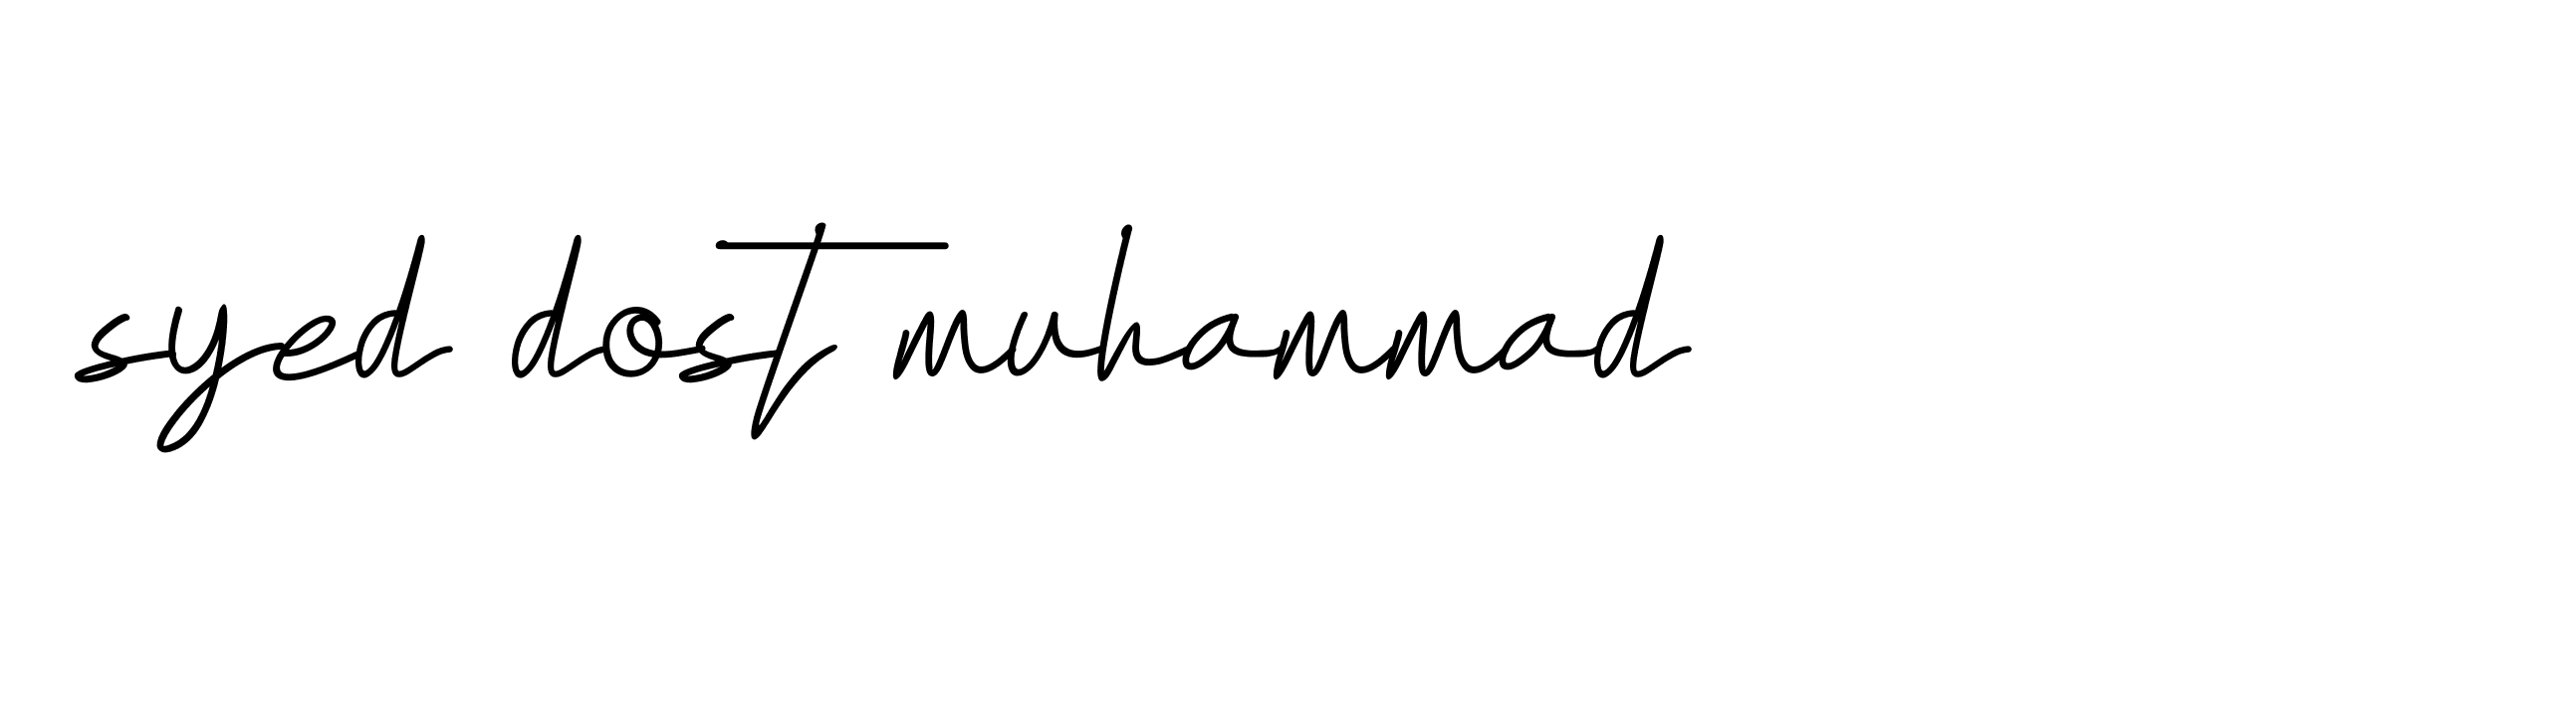 syed dost muhammad